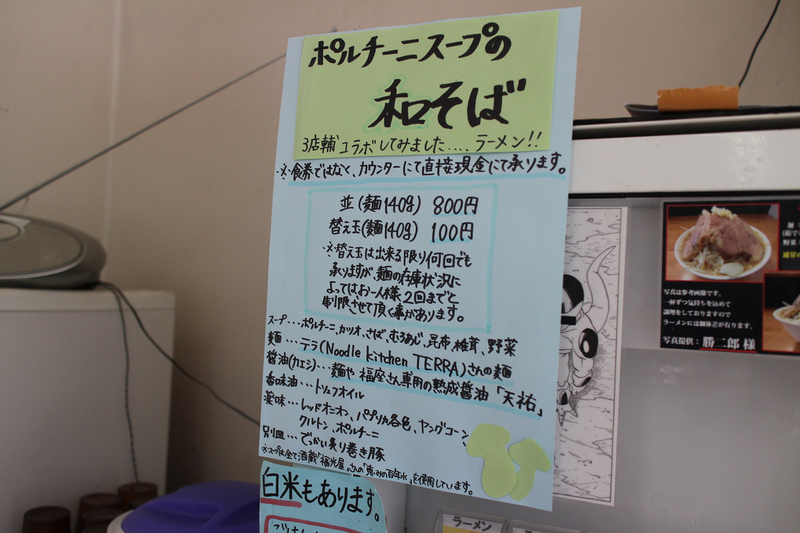 ポルチーニスープの
和そば
3店輔コラボしてみました.... ラーメン!!
※食券ではなく、カウンターにて直接現金にて承ります。
並(麺140g) 800円
替え玉(麺140g) 100円
※替え玉は出来る限り何回でも
承りますが、麺の在庫状況に
よってはお一人様2回までと
制限させて頂く事があります。
スープ…ポルチーニ、カツオ、さば、むろあじ、昆布、椎茸、野菜
麺…テラ(Noodle kitchen TERRA)さんの麺
醤油(カエシ)…麺や福座さん専用の熟成醤油「天祐」
香味油…トリュフオイル
薬味…レッドオニオン、パプリカ各色、ヤングコーン
クルトン、ポルチーニ
別皿…でっかい炙り巻き豚
※スープは全て酒蔵「福光屋」さんの「恵みの百年水」を使用しています。
白米もあります。
ごはん
ラーメン
写真は参考画像です。
一杯ずつ気持ちを込めて
調理をしておりますので
ラーメンには個体差が有ります。
写真提供：勝二郎 様